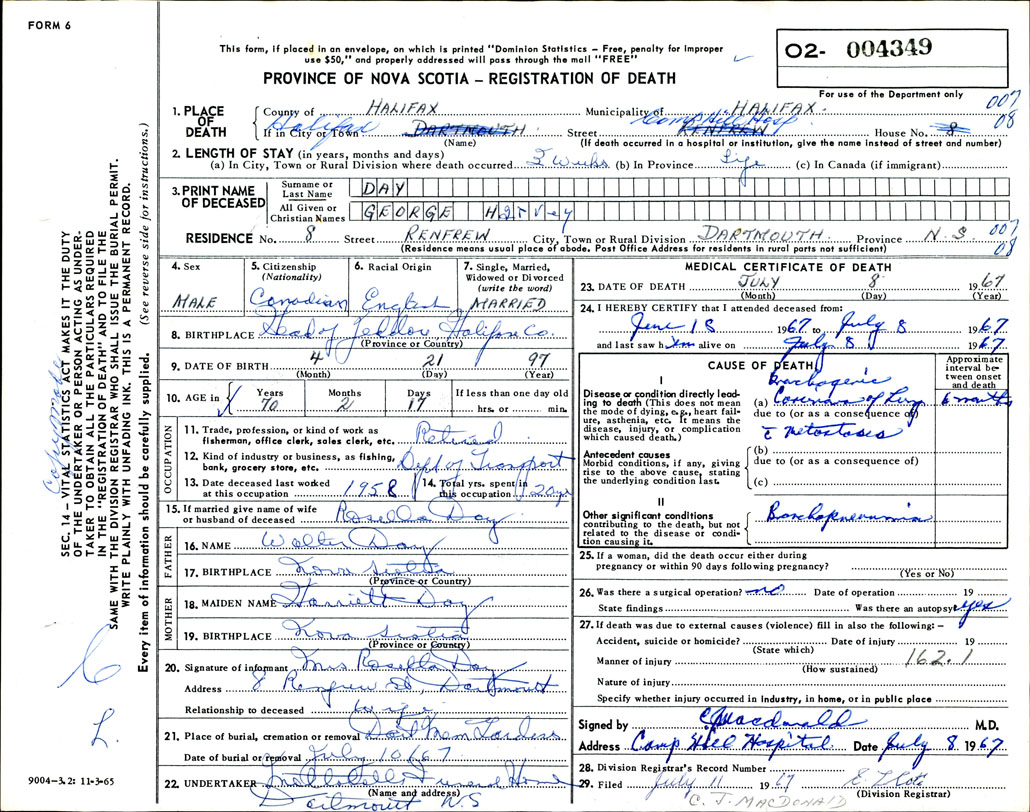 FORM 6
This form, if placed in an envelope, on which is printed "Dominion Statistics – Free, penalty for improper
use $50," and properly addressed will pass through the mail "FREE"
PROVINCE OF NOVA SCOTIA – REGISTRATION OF DEATH
O2- 004349
For use of the Department only
007
08
1. PLACE OF DEATH
County of HALIFAX Municipality of HALIFAX
Halifax Camp Hill Hosp
If in City or Town DARTMOUTH Street RENFREW House No. 8
(Name) (If death occurred in a hospital or institution, give the name instead of street and number)
2. LENGTH OF STAY (in years, months and days)
(a) In City, Town or Rural Division where death occurred 3 Weeks (b) In Province Life (c) In Canada (if immigrant)
3. PRINT NAME OF DECEASED
Surname or Last Name DAY
All Given or Christian Names GEORGE Harvey
RESIDENCE No. 8 Street RENFREW City, Town or Rural Division DARTMOUTH Province N.S. 007
08
(Residence means usual place of abode. Post Office Address for residents in rural parts not sufficient)
4. Sex
MALE
5. Citizenship (Nationality)
Canadian
6. Racial Origin
English
7. Single, Married, Widowed or Divorced (write the word)
MARRIED
8. BIRTHPLACE Head of Jeddore Halifax Co.
(Province or Country)
9. DATE OF BIRTH 4 21 97
(Month) (Day) (Year)
10. AGE in Years Months Days If less than one day old
70 2 17 hrs. or min.
OCCUPATION
11. Trade, profession, or kind of work as fisherman, office clerk, sales clerk, etc. Retired
12. Kind of industry or business, as fishing, bank, grocery store, etc. Dept of Transport
13. Date deceased last worked at this occupation 1958
14. Total yrs. spent in this occupation 20 yr
15. If married give name of wife or husband of deceased Rosella Day
FATHER
16. NAME Walter Day
17. BIRTHPLACE Nova Scotia
(Province or Country)
MOTHER
18. MAIDEN NAME Harriett Day
19. BIRTHPLACE Nova Scotia
(Province or Country)
20. Signature of informant Mrs Rosella Day
Address 8 Renfrew St, Dartmouth
Relationship to deceased wife
21. Place of burial, cremation or removal Dart Mem Gardens
Date of burial or removal July 10/67
22. UNDERTAKER Funeral Home
(Name and address)
Dartmouth N.S
MEDICAL CERTIFICATE OF DEATH
23. DATE OF DEATH JULY 8 1967
(Month) (Day) (Year)
24. I HEREBY CERTIFY that I attended deceased from:
June 18 1967 to July 8 1967
and last saw him alive on July 8 1967
CAUSE OF DEATH
Approximate interval between onset and death
I
Disease or condition directly leading to death (This does not mean the mode of dying, e.g., heart failure, asthenia, etc. It means the disease, injury, or complication which caused death.)
Bronchogenic
(a) Carcinoma of Lung 6 months
due to (or as a consequence of)
c̄ metastases
Antecedent causes
Morbid conditions, if any, giving rise to the above cause, stating the underlying condition last.
(b)
due to (or as a consequence of)
(c)
II
Other significant conditions
contributing to the death, but not related to the disease or condition causing it.
Bronchopneumonia
25. If a woman, did the death occur either during
pregnancy or within 90 days following pregnancy?
(Yes or No)
26. Was there a surgical operation? no Date of operation 19
State findings Was there an autopsy yes
27. If death was due to external causes (violence) fill in also the following: –
Accident, suicide or homicide? Date of injury 19
(State which)
Manner of injury 162.1
(How sustained)
Nature of injury
Specify whether injury occurred in industry, in home, or in public place
Signed by C J Macdonald M.D.
Address Camp Hill Hospital Date July 8 1967
28. Division Registrar's Record Number
29. Filed July 11 1967
(Division Registrar)
C. J. MACDONALD
SEC. 14 – VITAL STATISTICS ACT MAKES IT THE DUTY
OF THE UNDERTAKER OR PERSON ACTING AS UNDER-
TAKER TO OBTAIN ALL THE PARTICULARS REQUIRED
IN THE "REGISTRATION OF DEATH" AND TO FILE THE
SAME WITH THE DIVISION REGISTRAR WHO SHALL ISSUE THE BURIAL PERMIT.
WRITE PLAINLY WITH UNFADING INK. THIS IS A PERMANENT RECORD.
Every item of information should be carefully supplied. (See reverse side for instructions.)
Copy made
L.
9004-3.2: 11-3-65